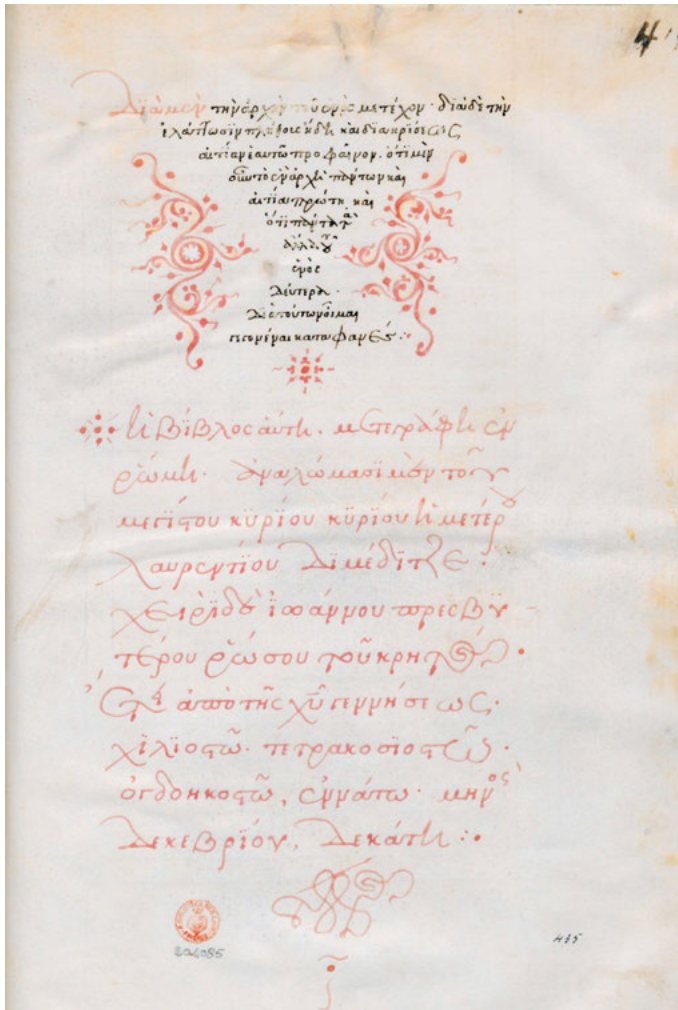 4
Διὰ μὲν τὴν ἀρχὴν τοῦ ἑνὸς μετέχον· διὰ δὲ τὴν
ἐλάττωσϊν πλήθους ἤδη καὶ διακρίσεως
αἰτίαν ἑαυτῶ προφαῖνον. ὅτι μὲν
οὖν τὸ ἓν ἀρχὴ πάντων καὶ
αἰτία πρώτη, καὶ
ὅτϊ πάντα τὰ
ἄλλα τοῦ
ἑνὸς
δεύτερα.
διὰ τούτων οἶμαι
γεγονέναι καταφανές:
ἡ βίβλος αὕτη. μετεγράφη ἐν
ῥώμη. ἀναλώμασϊ μὲν τοῦ
μεγίστου κϋρίου κϋρίου ἡμετέρου
λαυρεντίου δϊ μέδϊτζε.
χειρὶ δὲ ἰωάννου πρεσβϋ
τέρου ῥώσου τοῦ κρητὸς.
ἔτει ἀπὸ τῆς χῦ γεννήσεως.
χϊλϊοστῶ. τετρακοσϊοστῶ.
ὀγδοηκοστῶ, ἐννάτω. μηνὸς
δεκεβρϊου, δεκάτη:
435